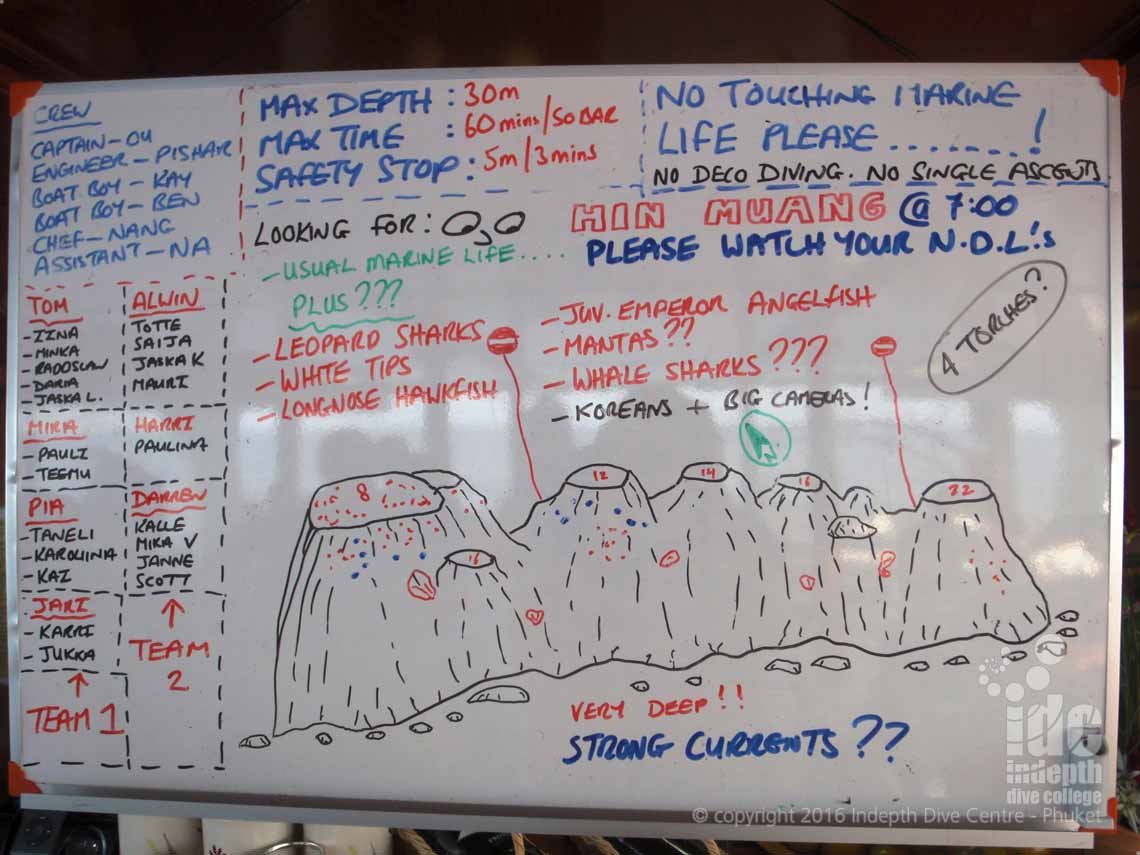 CREW
CAPTAIN-OU
ENGINEER-PISHAR
BOAT BOY-KAY
BOAT BOY-BEN
CHEF-NANG
ASSISTANT-NA
MAX DEPTH : 30m
MAX TIME : 60mins/50BAR
SAFETY STOP : 5m/3mins
NO TOUCHING MARINE
LIFE PLEASE........!
NO DECO DIVING. NO SINGLE ASCENTS.
HIN MUANG @ 7:00
PLEASE WATCH YOUR N.D.L's
LOOKING FOR:
-USUAL MARINE LIFE....
PLUS???
-LEOPARD SHARKS
-WHITE TIPS
-LONGNOSE HAWKFISH
-JUV. EMPEROR ANGELFISH
-MANTAS??
-WHALE SHARKS???
-KOREANS + BIG CAMERAS!
4 TORCHES?
TOM
-IZNA
-MINKA
-RADOSLAW
-DARIA
-JASKA L.
ALWIN
TOTTE
SAIJA
JASKA K
MAURI
MIKA
-PAULI
-TEEMU
HARRI
PAULINA
PIA
-TANELI
-KAROLIINA
-KAZ
DARREN
KALLE
MIKA V
JANNE
SCOTT
JARI
-KARRI
-JUKKA
TEAM 1
TEAM
2
8
16
12
14
16
22
VERY DEEP!!
STRONG CURRENTS??
idc
indepth
dive college
© copyright 2016 Indepth Dive Centre - Phuket